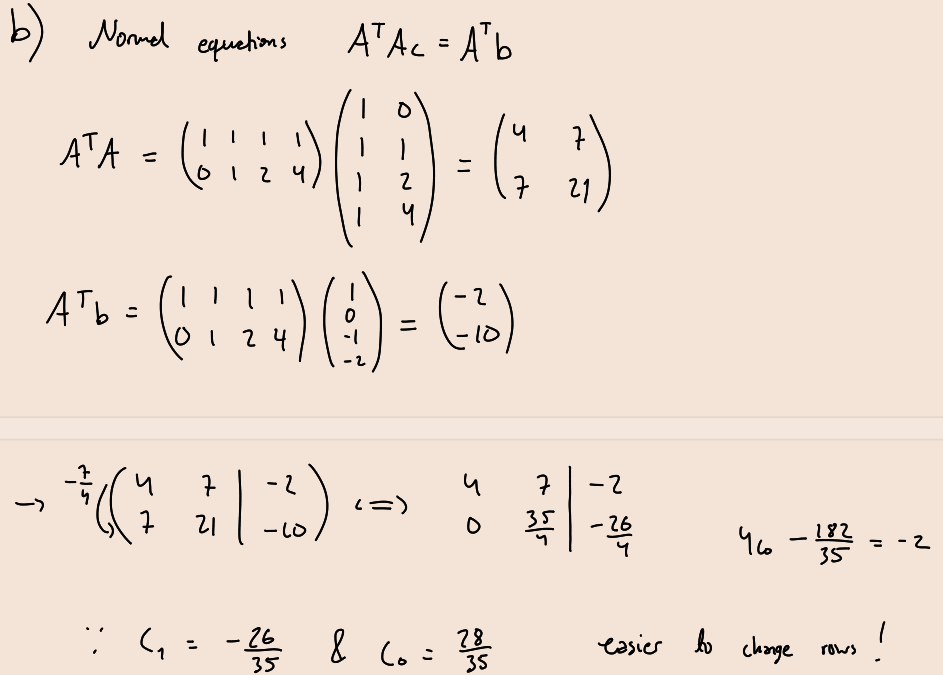 b) Normal equations AᵀAc = Aᵀb
AᵀA = (1 1 1 1; 0 1 2 4) (1 0; 1 1; 1 2; 1 4) = (4 7; 7 21)
Aᵀb = (1 1 1 1; 0 1 2 4) (1; 0; -1; -2) = (-2; -10)
→ -7/4 (4 7 | -2; 7 21 | -10) <=> 4 7 | -2; 0 35/4 | -26/4
4c₀ - 182/35 = -2
∵ c₁ = -26/35 & c₀ = 28/35 easier to change rows!